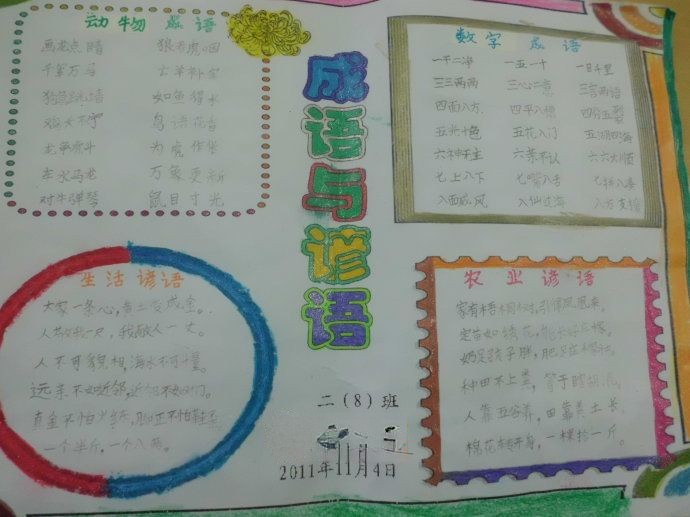 动物成语
画龙点睛 狼吞虎咽
千军万马 亡羊补牢
狗急跳墙 如鱼得水
鸡犬不宁 鸟语花香
龙争虎斗 为虎作伥
车水马龙 万象更新
对牛弹琴 鼠目寸光
成语与谚语
数字成语
一干二净 一五一十 一日千里
三三两两 三心二意 三言两语
四面八方 四平八稳 四分五裂
五光十色 五花八门 五湖四海
六神无主 六亲不认 六六大顺
七上八下 七嘴八舌 七拼八凑
八面威风 八仙过海 八方支援
生活谚语
大家一条心,黄土变成金。
人敬我一尺,我敬人一丈。
人不可貌相,海水不可量。
远亲不如近邻,近邻不如对门。
真金不怕火炼,脚正不怕鞋歪
一个半斤,一个八两。
农业谚语
家有梧桐树,引得凤凰来。
苗如绣花,
奶是孩子
种田不上粪,等于瞎胡混。
人靠五谷养,田靠粪土长。
棉花,一棵拾一斤。
二(8)班
2011年11月4日